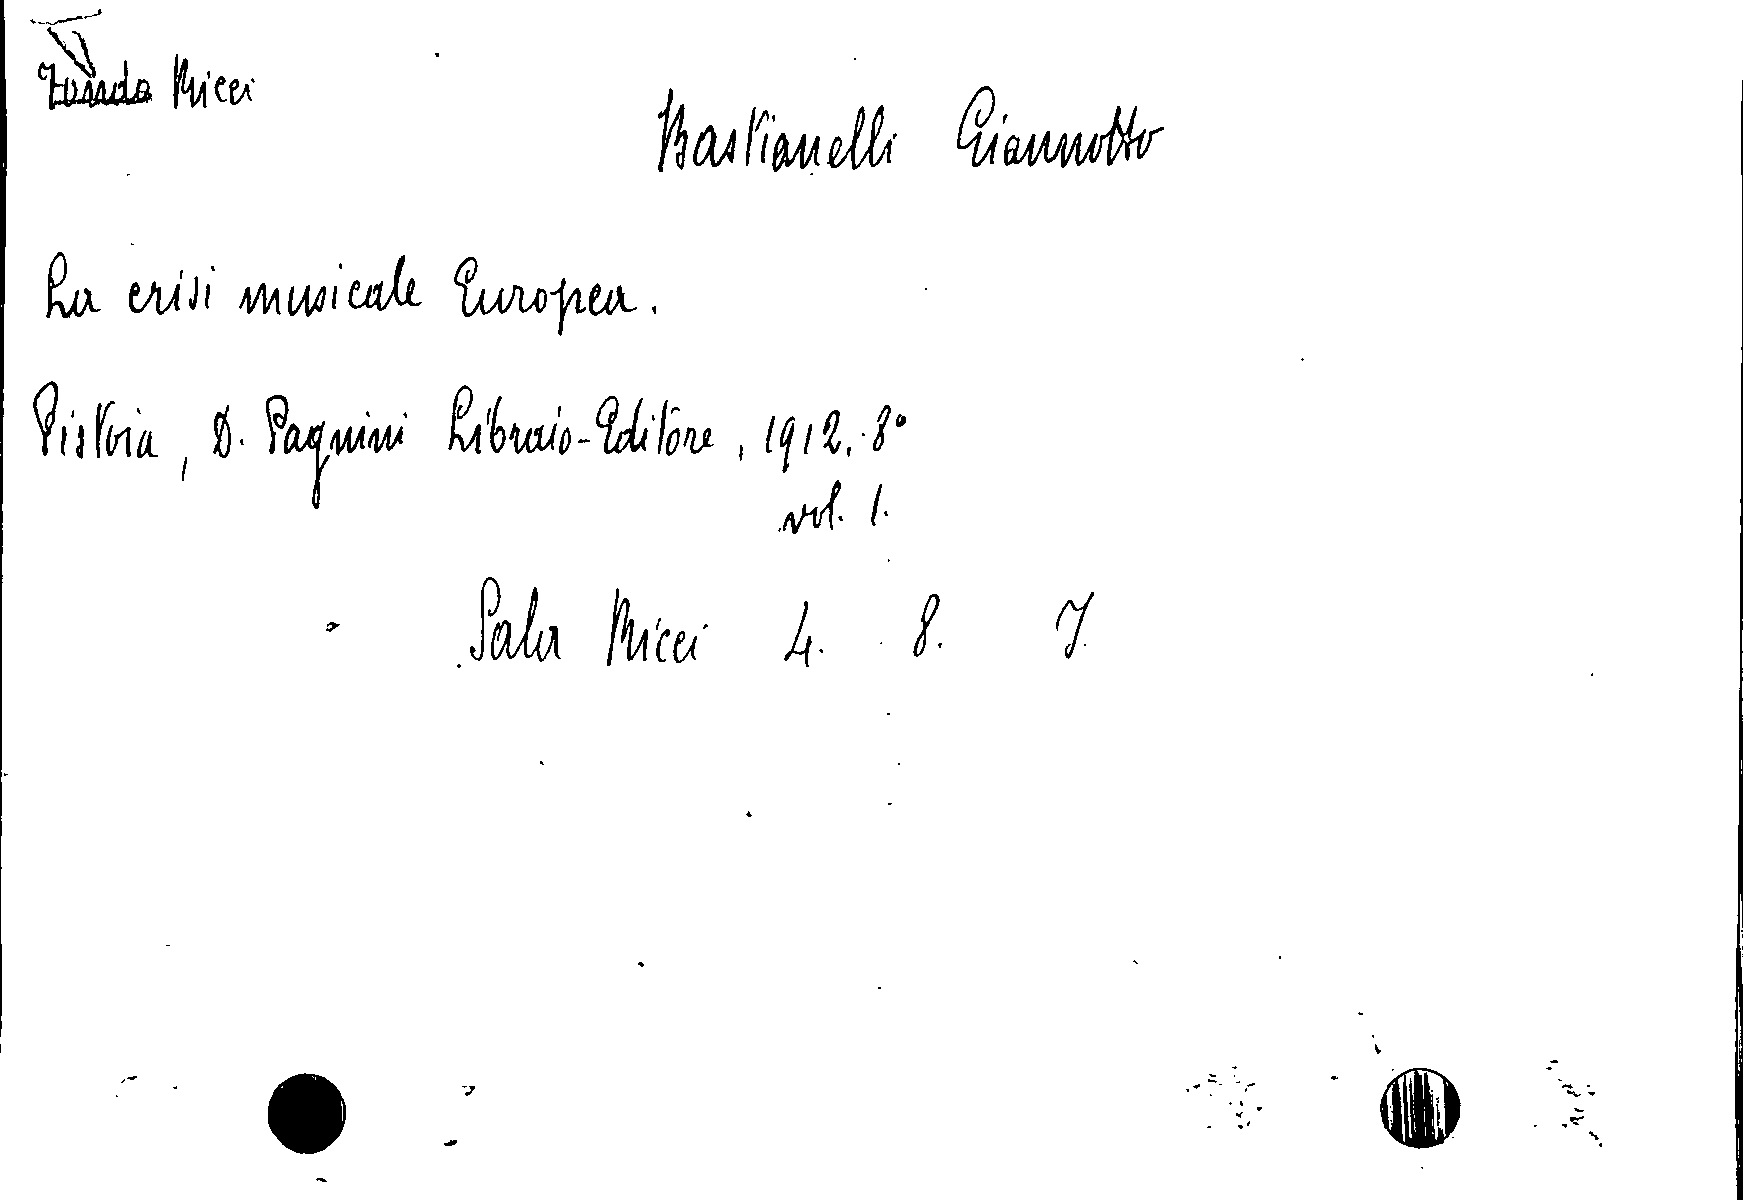 Fondo Ricci
Bastianelli Giannotto
La crisi musicale Europea.
Pistoia, D. Pagnini Libraio-Editore, 1912. 8°
vol. 1.
Sala Ricci 4. 8. 7.